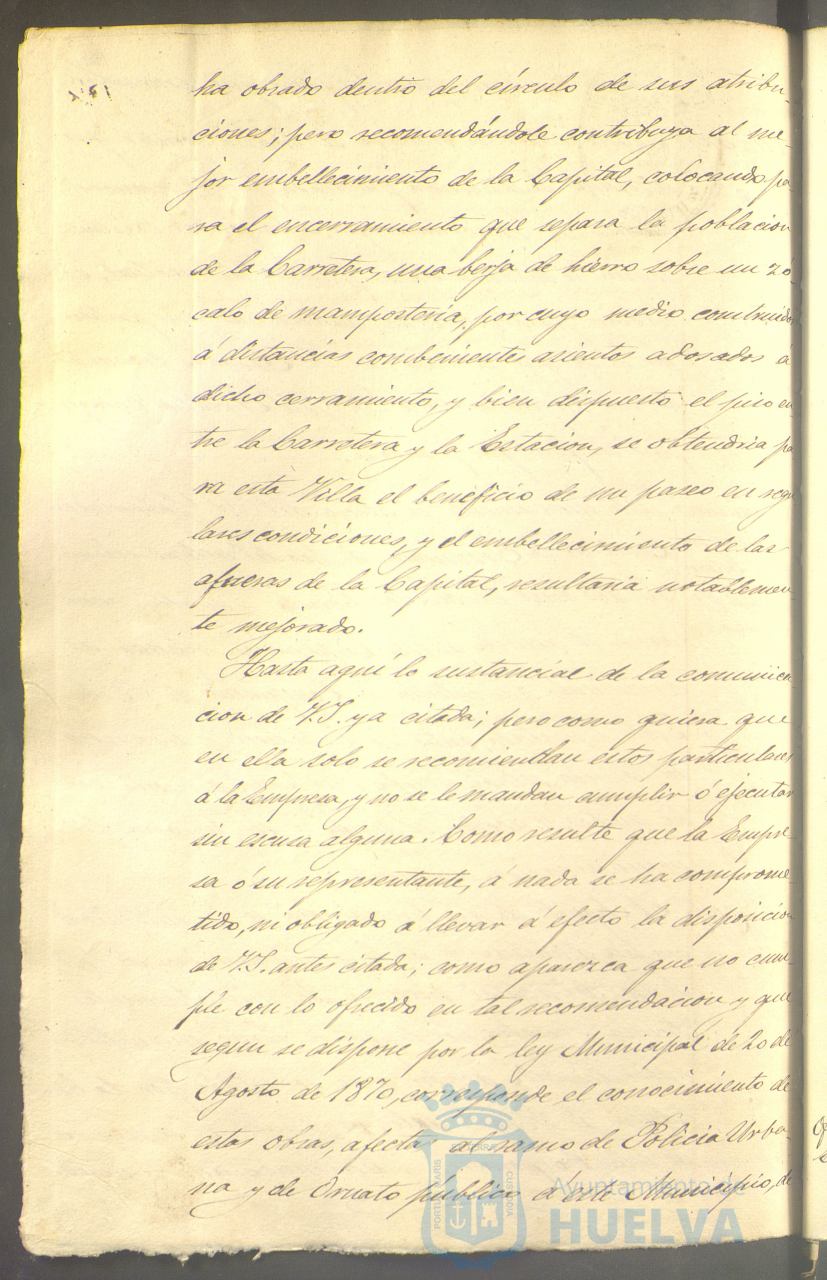 ha obrado dentro del círculo de sus atribu-
ciones; pero recomendándole contribuya al me-
jor embellecimiento de la Capital, colocando pa-
ra el encerramiento que separa la poblacion
de la Carretera, una berja de hierro sobre un zó-
calo de mamposteria, por cuyo medio construidos
á distancias combenientes asientos adosados á
dicho cerramiento, y bien dispuesto el piso en-
tre la Carretera y la Estacion, se obtendria pa
ra esta Villa el beneficio de un paseo en regu
lares condiciones, y el embellecimiento de las
afueras de la Capital, resultaria notablemen
te mejorado.
Hasta aquí lo sustancial de la comunica
cion de V.S. ya citada; pero como quiera que
en ella solo se recomiendan estos particulares
á la Empresa, y no se le mandan cumplir ó ejecutar
sin escusa alguna. Como resulte que la Empre
sa ó su representante, á nada se ha comprome-
tido, ni obligado á llevar á efecto la disposicion
de V.S. antes citada; como aparezca que no cum-
ple con lo ofrecido en tal recomendacion y que
segun se dispone por la ley Municipal de 20 de
Agosto de 1870, corresponde el conocimiento de
estas obras, afecta al ramo de Policia Urba-
na y de Ornato público á este Municipio, de
Ayuntamiento de
HUELVA
PORTUS MARIS
CUSTODIA